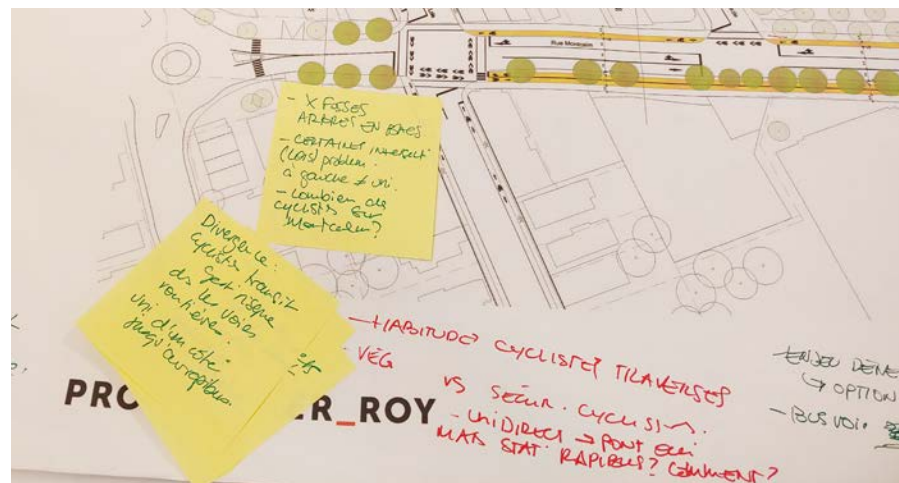 Rue Montcalm
- X FOSSES
ARBRES EN BAES
- CERTAINES INTERSECT.
(LOIS) problem.
à gauche ≠ uni.
- Combien de
cyclistes sur
Montcalm?
Divergence:
cycliste transit
gest. risque
ds les voies
routières.
uni d'un côté
jusqu'au
- HABITUDE CYCLISTES TRAVERSES
- VÉG
VS SÉCUR. CYCLISTES.
- UNIDIRECT → PONT OUI
MAIS STAT RAPIBUS? COMMENT?
PRO
ER_ROY
- ENJEU DÉNE
↳ OPTION
- BUS VOI.